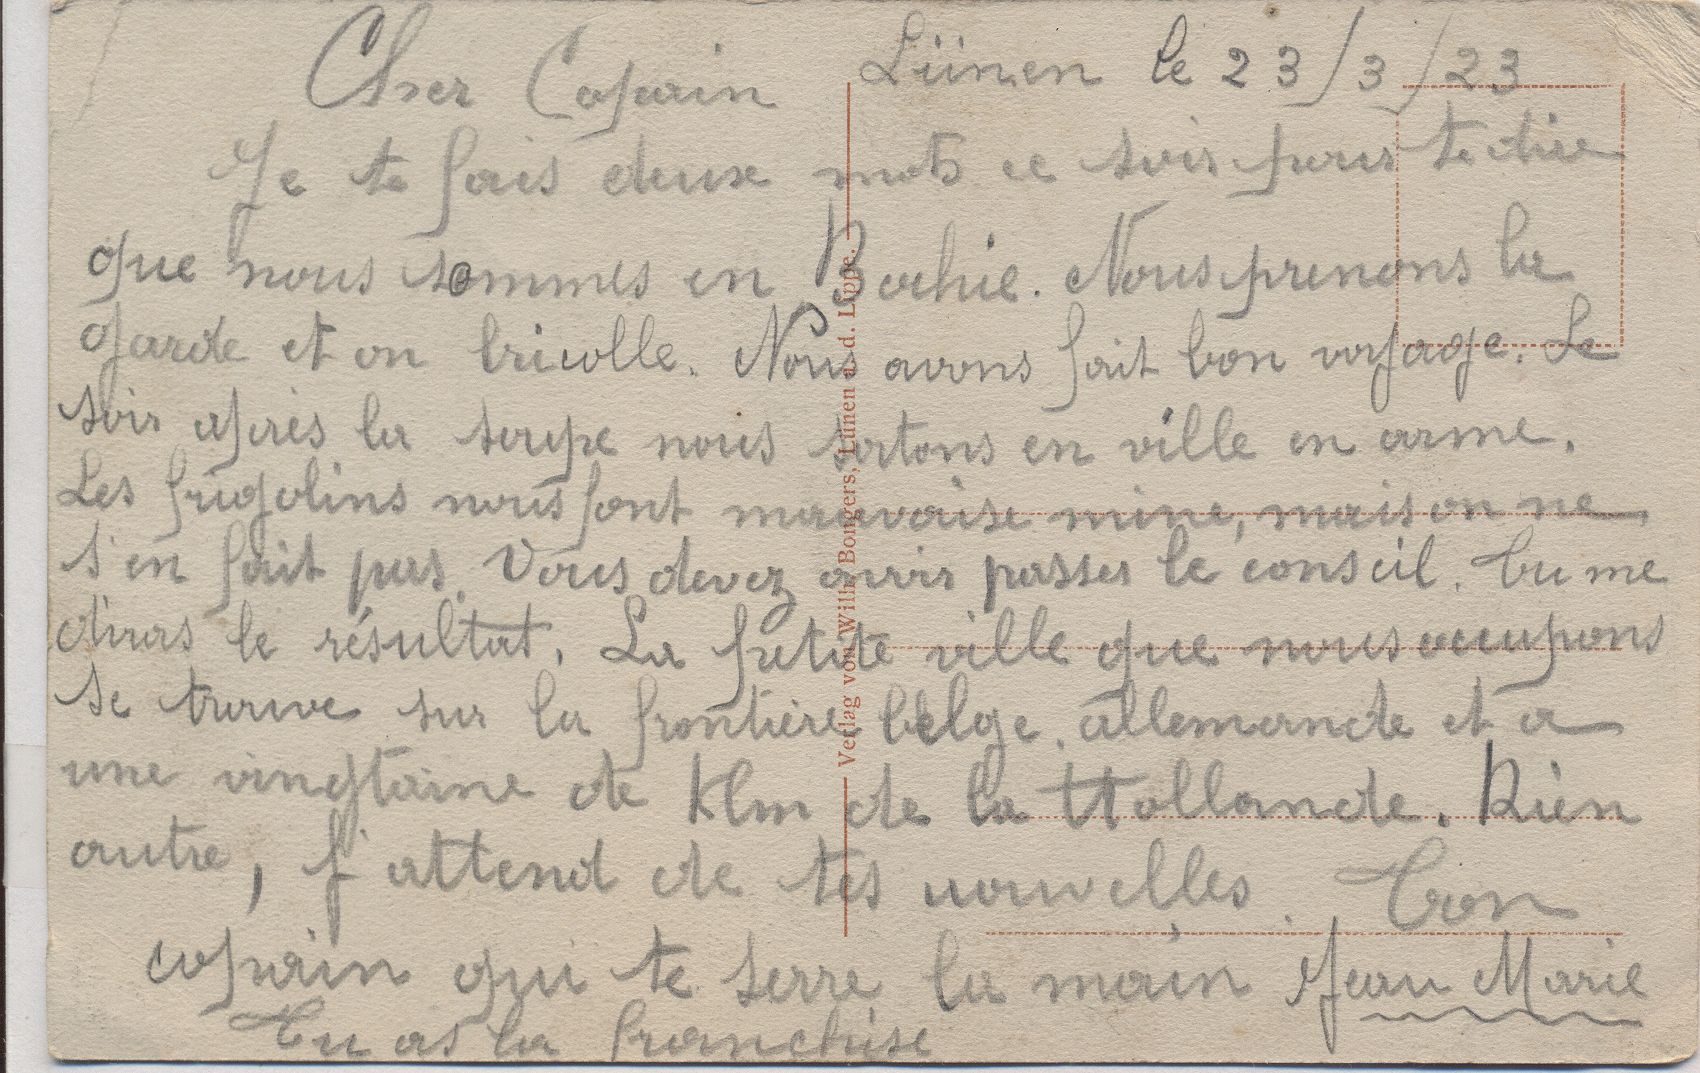 Cher Copain Lünen le 23/3/23
Je te fais deux mots ce soir pour te dire
que nous sommes en Bochie. Nous prenons la
garde et on bricolle. Nous avons fait bon voyage. Le
soir après la soupe nous sortons en ville en arme.
Les frigolins nous font mauvaise mine, mais on ne
s'en fait pas. Vous devez avoir passer le conseil. Tu me
diras le résultat. La petite ville que nous occupons
se trouve sur la frontière belge. allemande et a
une vingtaine de Klm de la Hollande. Rien
autre, j'attend de tes nouvelles. Ton
copain qui te serre la main Jean Marie
Tu as la franchise
Verlag von Willy Bongers, Lünen a. d. Lippe.